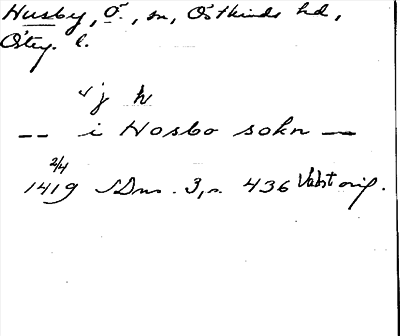 Husby, Ö., sn, Östkinds hd,
Östg. l.
vj h
-- i Hosbo sokn --
2/4
1419 SDns. 3, s. 436 Vidstorig.